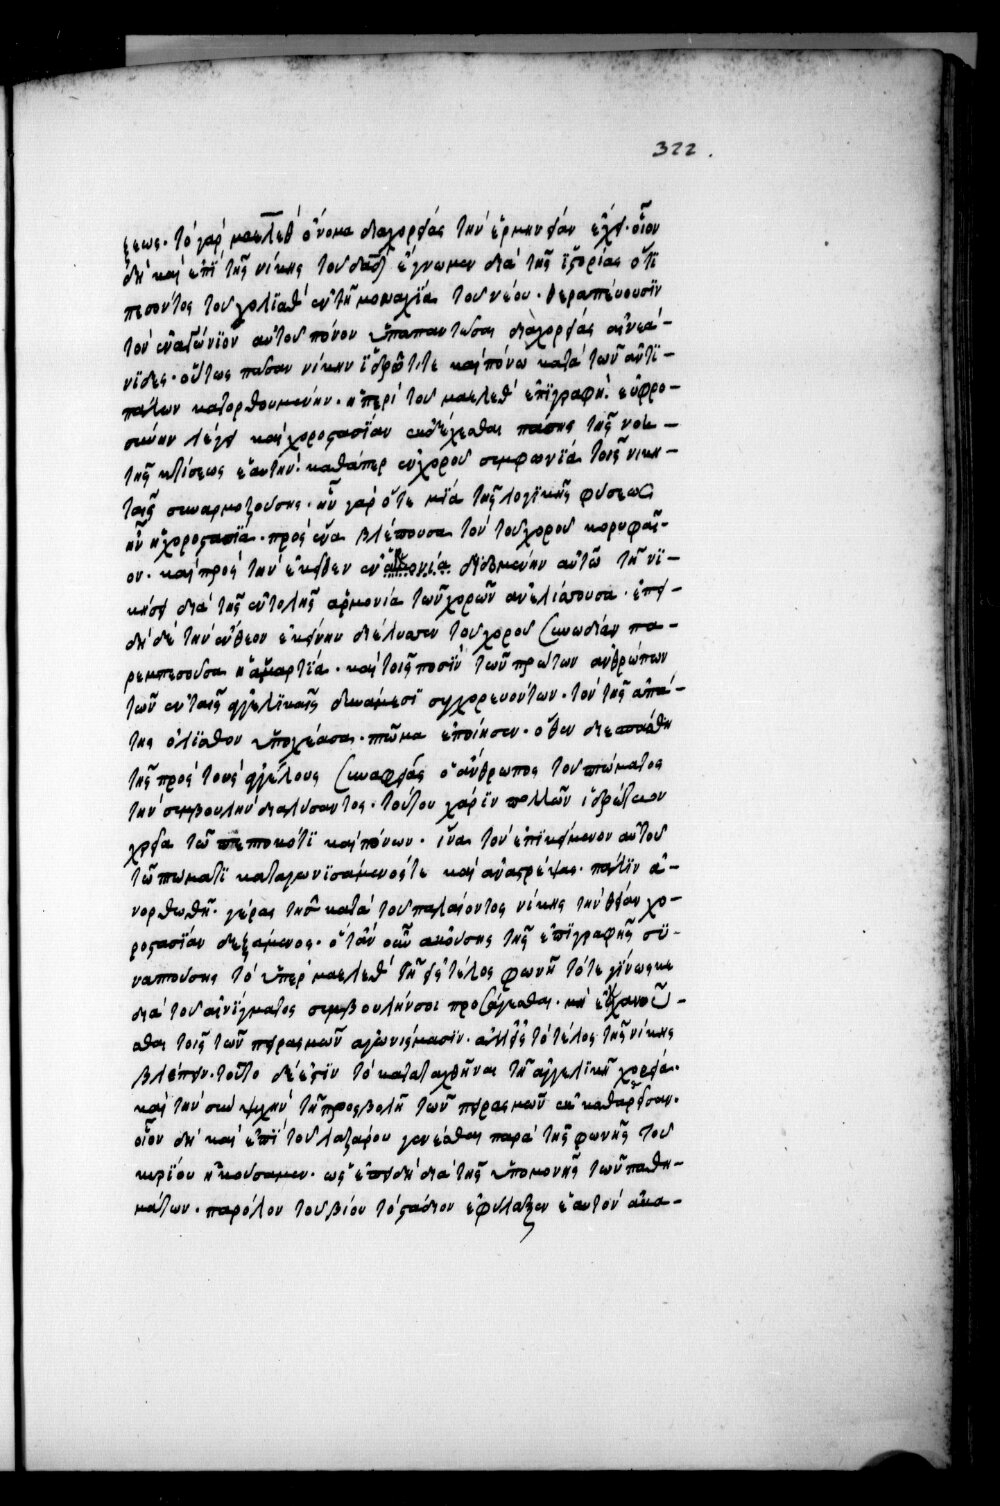 322.
ξεως. τὸ γὰρ μαελὲθ ὄνομα διαχορείας τὴν ἑρμηνείαν ἔχει. οἷον
δὴ καὶ ἐπὶ τῆς νίκης τοῦ δα̅δ̅ ἔγνωμεν διὰ τῆς ἱστορίας ὅτι
πεσόντος τοῦ γολιὰθ ἐν τῇ μομαχία τοῦ νέου. θεραπεύουσιν
τὸν ἐναγώνιον αὐτοῦ πόνον ὑπαπαντῶσαι διὰ χορείας αἱ νεά-
νιδες. οὕτως πᾶσαν νίκην ἱδρῶτί τε καὶ πόνω κατὰ τῶν ἀντι-
πάλων κατορθουμένην. ἡ περὶ τοῦ μαελὲθ ἐπιγραφὴ. εὐφρο-
σύνην λέγει καὶ χοροστασίαν ἐκδέχεσθαι πάσης τῆς νοη-
τῆς κτίσεως ἑαυτὴν καθάπερ ἐν χοροῦ συμφωνία τοῖς νικη-
ταῖς συναρμοζούσης. ἦν γὰρ ὅτε μία τῆς λογικῆς φύσεως
ἦν ἡ χοροστασία. πρὸς ἕνα βλέπουσα τὸν τοῦ χοροῦ κορυφαῖ-
ον. καὶ πρὸς τὴν ἐκεῖθεν ἐν ἁρμονία διδομένην αὐτῶ τῇ νι-
κήσει διὰ τῆς ἐντολῆς ἁρμονία τῶν χορῶν ἀνελίττουσα. ἐπει-
δὴ δὲ τὴν ἔνθεον ἐκείνην διέλυσεν τοῦ χοροῦ συνωδίαν πα-
ρεμπεσοῦσα ἡ ἁμαρτία. καὶ τοῖς ποσὶν τῶν πρώτων ἀνθρώπων
τῶν ἐν ταῖς ἀγγελικαῖς δυνάμεσι συγχορευόντων. τὸν τῆς ἀπά-
της ὄλισθον ὑποχέασα. πτῶμα ἐποίησεν. ὅθεν διεσπάσθη
τῆς πρὸς τοὺς ἀγγέλους συναφείας ὁ ἄνθρωπος τοῦ πτώματος
τὴν συμβουλὴν διαλύσαντος. τούτου χάριν πολλῶν ἱδρώτων
χρεία τῶ πεπτωκότι καὶ πόνων. ἵνα τὸν ἐπικείμενον αὐτοῦ
τῶ πτώματι καταγωνισάμενός τε καὶ ἀναστρέψας. πάλιν ἀ-
νορθωθῇ. γέρας τῆς κατὰ τοῦ παλαίοντος νίκης τὴν θείαν χο-
ροστασίαν δεξάμενος. ὅταν οὖν ἀκούσης τῆς ἐπιγραφῆς συ-
ναπτούσης τὸ ὑπὲρ μαελὲθ τῇ εἰς τέλος φωνῇ τότε γίνωσκε
διὰ τοῦ αἰνίγματος συμβουλήν σοι προσάγεσθαι. μὴ ἐκχαυνοῦ-
σθαι τοῖς τῶν πειρασμῶν ἀγωνίσμασιν. ἀλλ᾽ εἰς τὸ τέλος τῆς νίκης
βλέπειν. τοῦτο δέ ἐστιν τὸ καταταχθῆναι τῇ ἀγγελικῇ χορεία.
καὶ τὴν σὴν ψυχὴν τῇ προσβολῇ τῶν πειρασμῶν ἐκκαθαρεῖσαν.
οἷον δὴ καὶ ἐπὶ τοῦ λαζάρου γενέσθαι παρὰ τῆς φωνῆς τοῦ
κυρίου ἠκούσαμεν. ὡς ἐπειδὴ διὰ τῆς ὑπομονῆς τῶν παθη-
μάτων. παρόλον τοῦ βίου τὸ στάδιον ἐφύλαξεν ἑαυτὸν ἀκα-